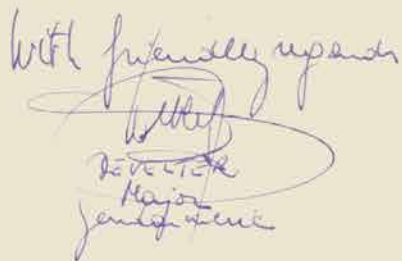 With friendly regards
DEVESTER
Major
Gendarmerie